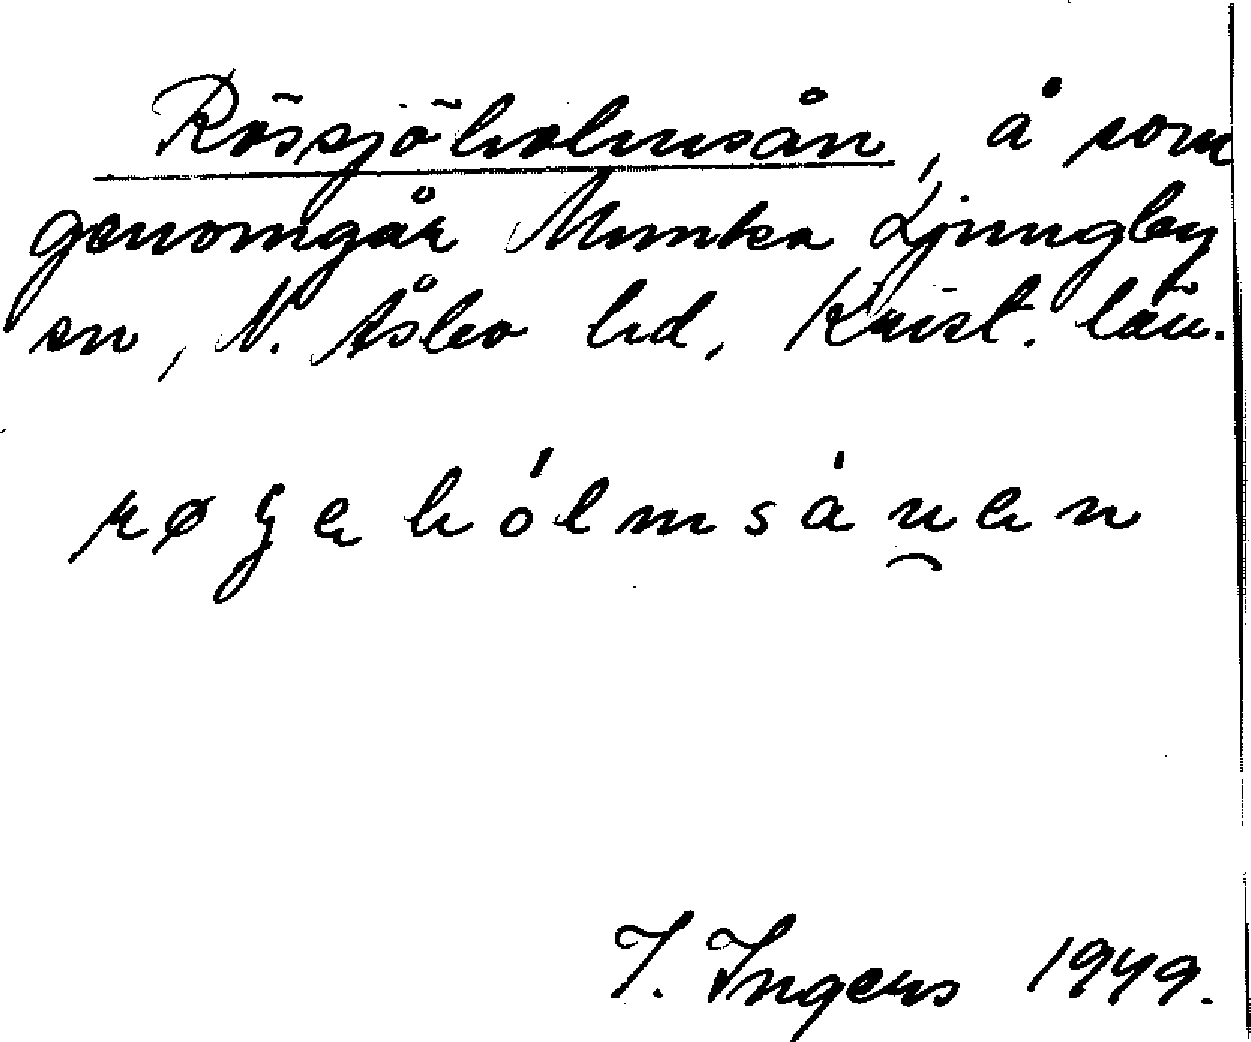 Rössjöholmsån, å som
genomgår Munka Ljungby
sn, N. Åsbo hd, Krist. län.
I. Ingers 1949.